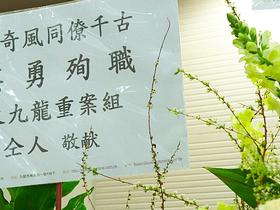 奇風同僚千古
勇殉職
九龍重案組
全人 敬献